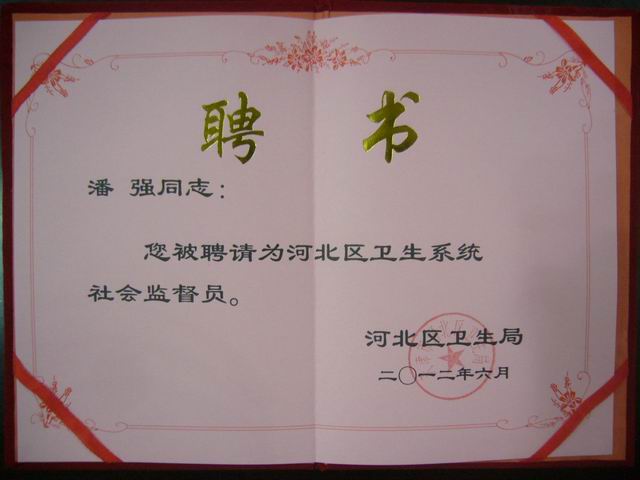 聘书
潘 强同志：
您被聘请为河北区卫生系统
社会监督员。
河北区卫生局
二〇一二年六月